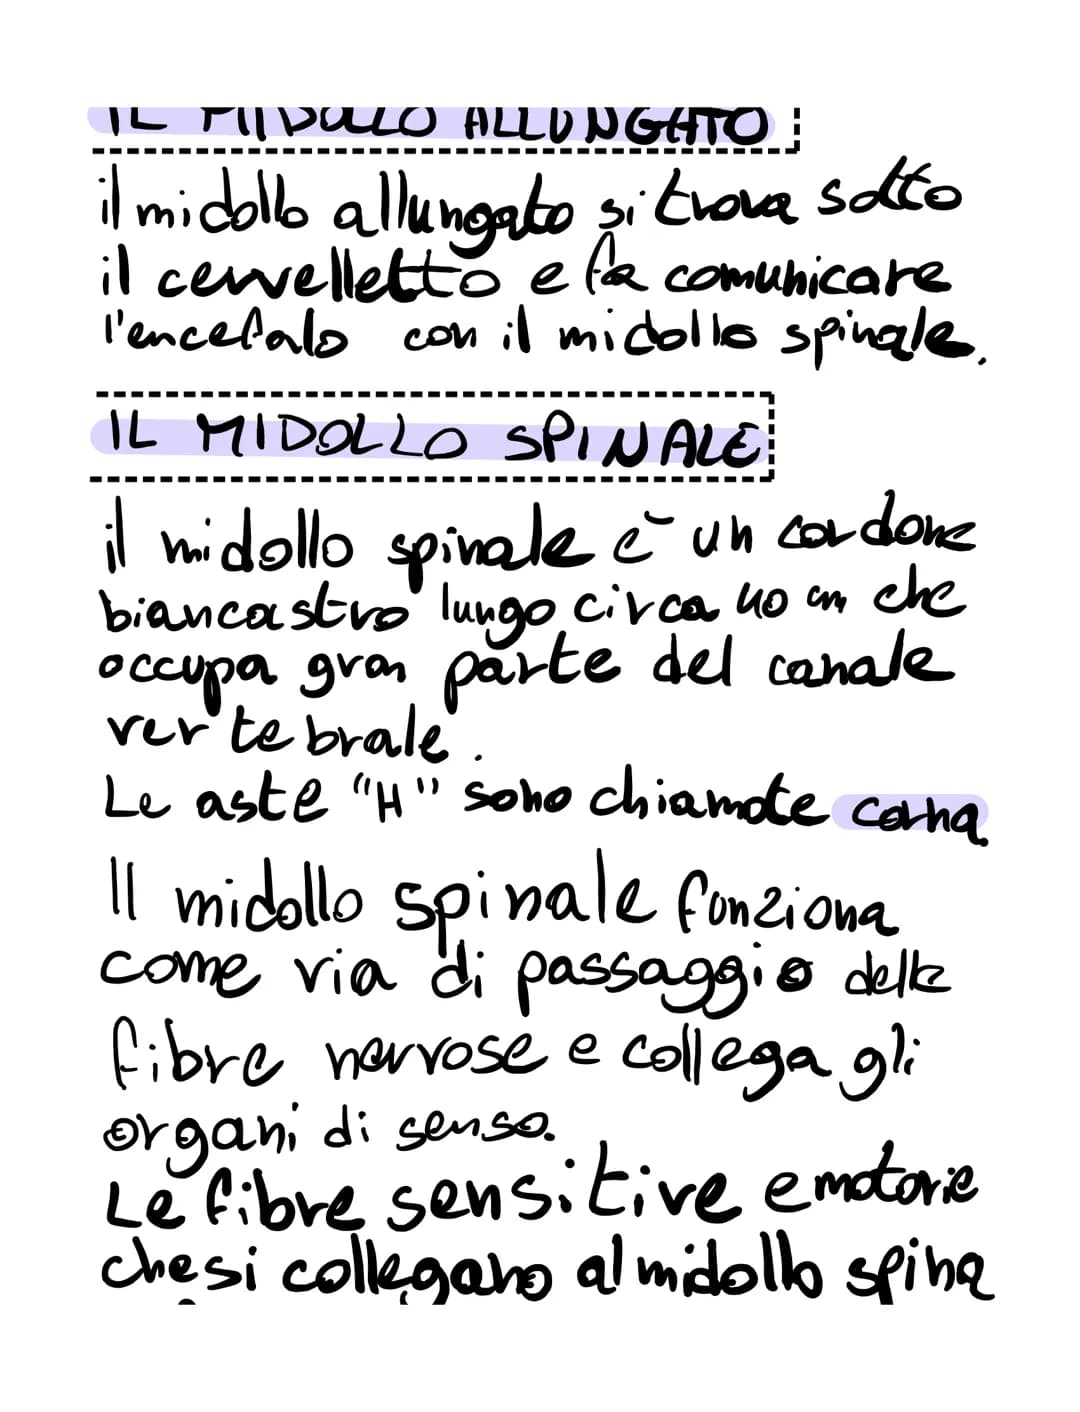 IL MIDOLLO ALLUNGATO
il midollo allungato si trova sotto
il cervelletto e fa comunicare
l'encefalo con il midollo spinale.
IL MIDOLLO SPINALE
il midollo spinale è un cordone
biancastro lungo circa 40 cm che
occupa gran parte del canale
vertebrale.
Le aste "H" sono chiamate corna
Il midollo spinale funziona
come via di passaggio delle
fibre nervose e collega gli
organi di senso.
Le fibre sensitive e motorie
che si collegano al midollo spina